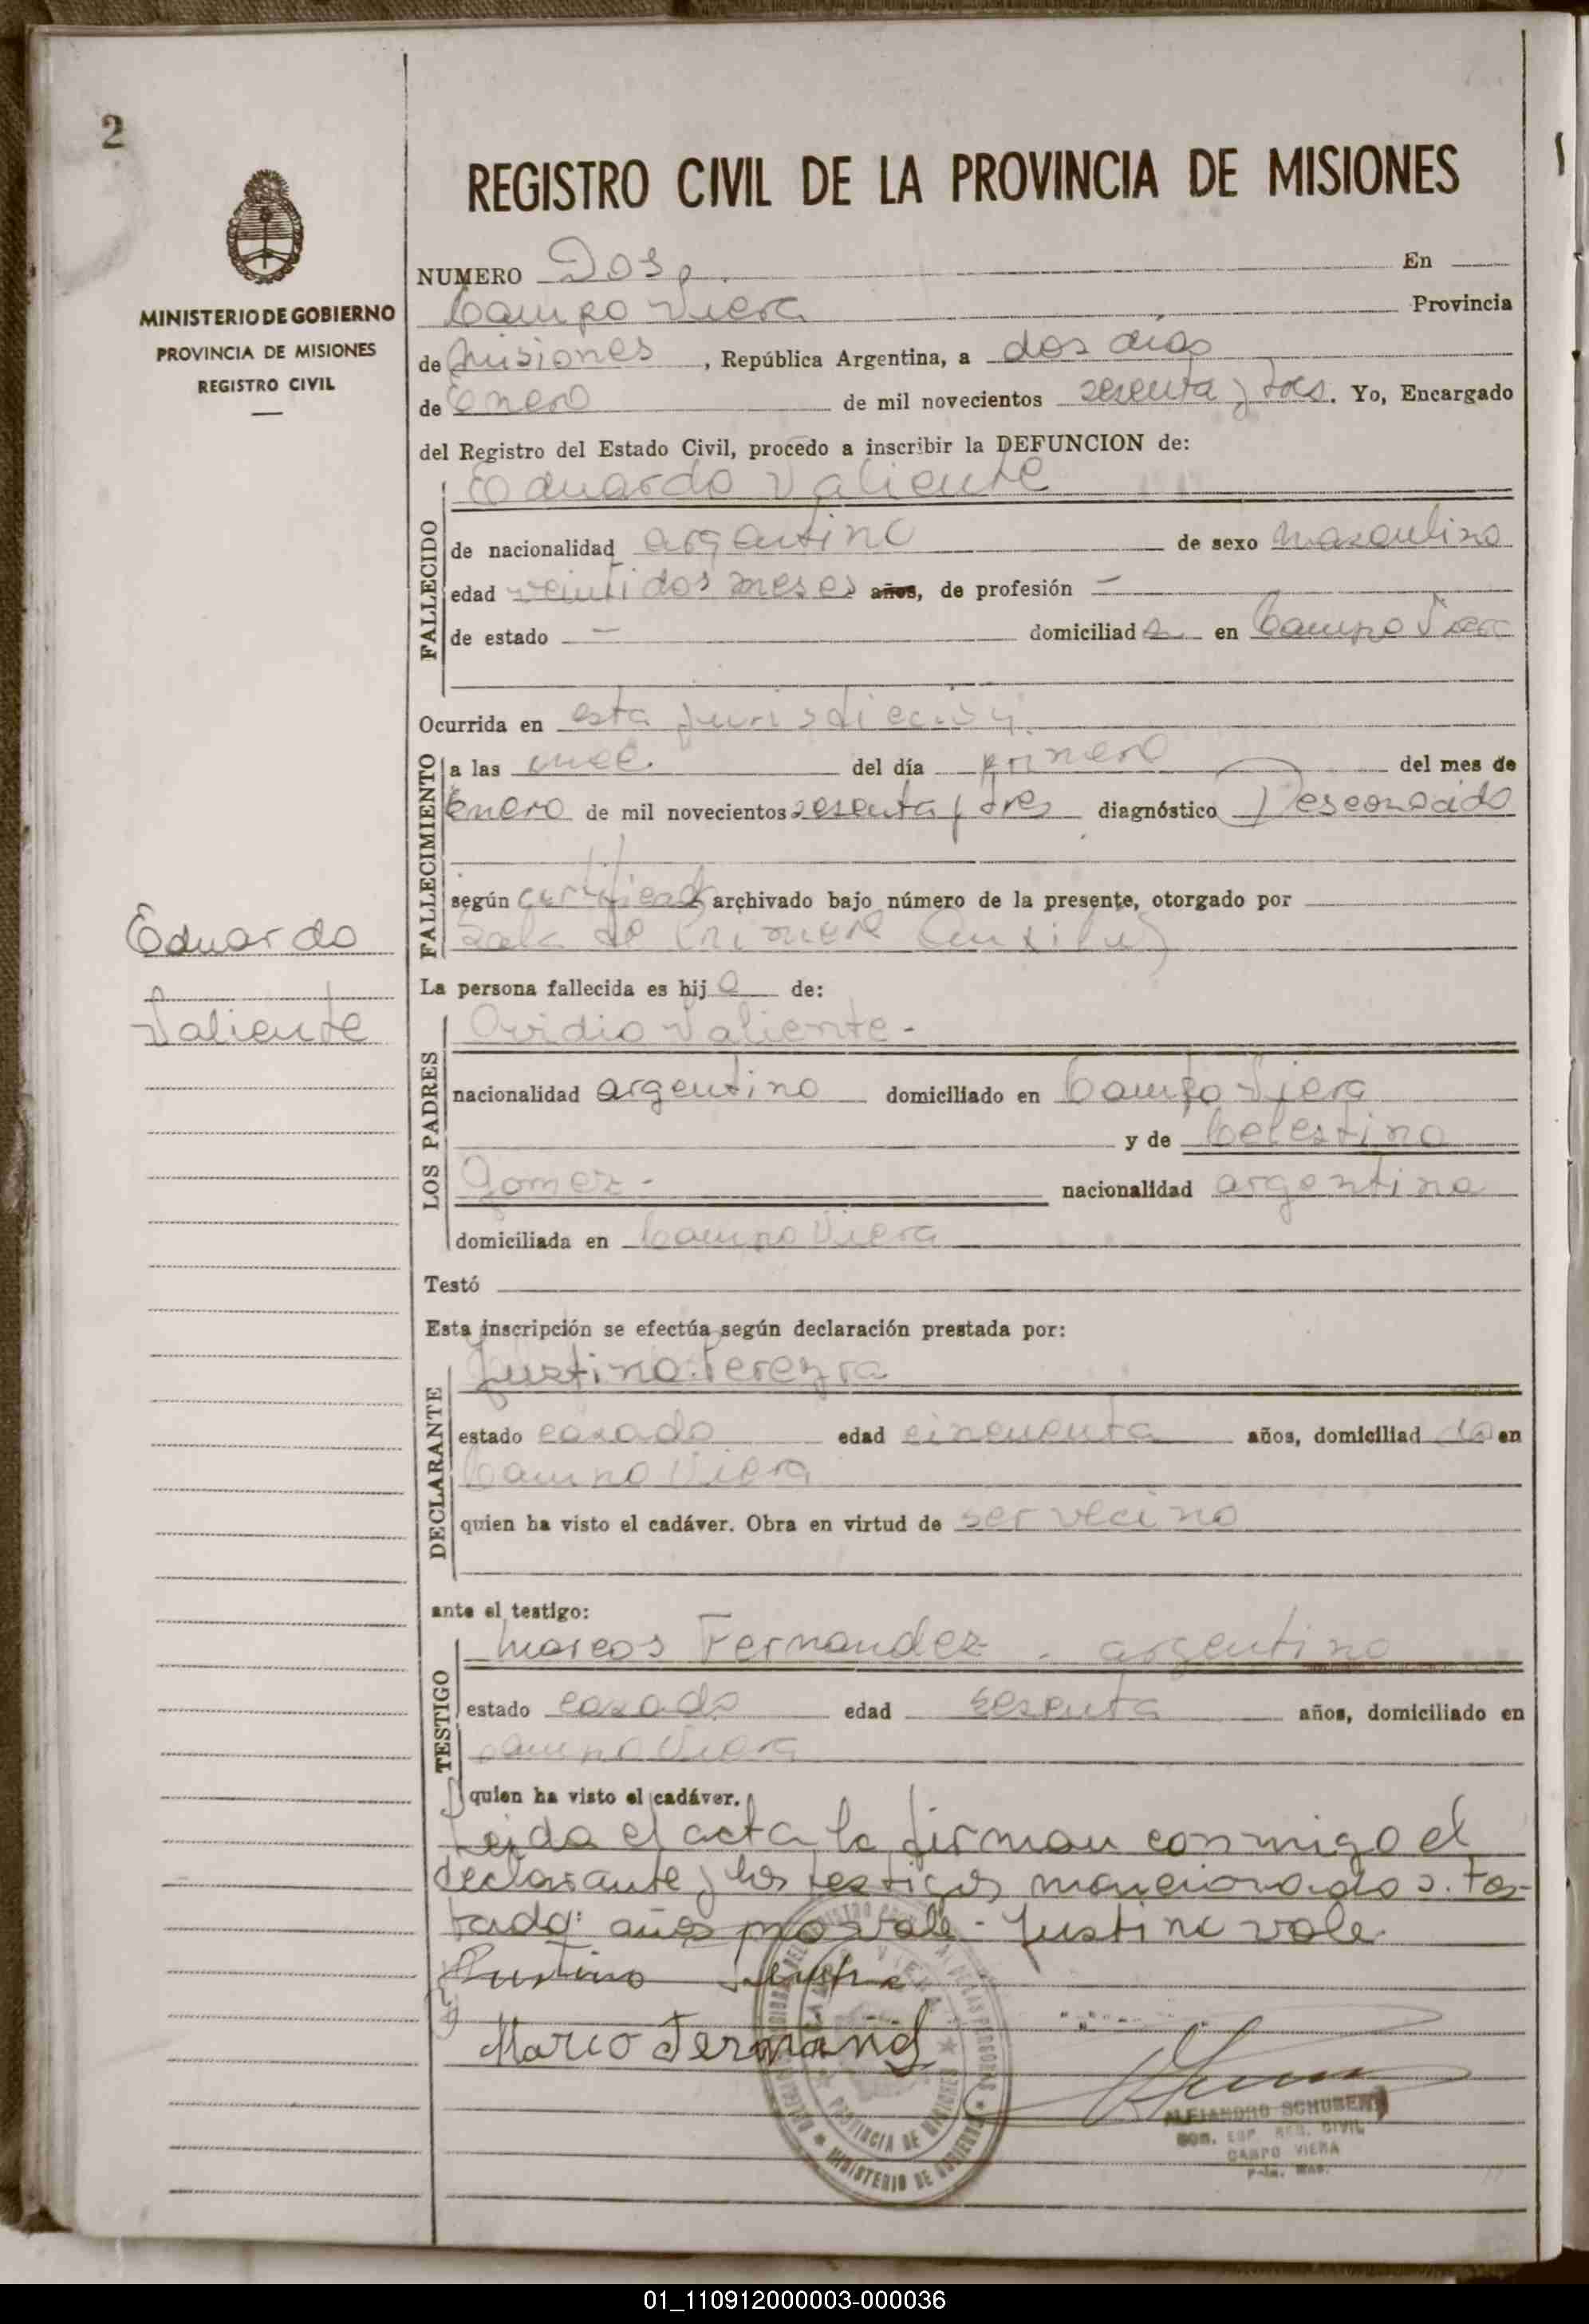 2
REGISTRO CIVIL DE LA PROVINCIA DE MISIONES
MINISTERIO DE GOBIERNO
PROVINCIA DE MISIONES
REGISTRO CIVIL
NUMERO Dos, En
Campo Viera Provincia
de Misiones, República Argentina, a dos días
de Enero de mil novecientos sesenta y tres. Yo, Encargado
del Registro del Estado Civil, procedo a inscribir la DEFUNCION de:
Eduardo Valiente
FALLECIDO
de nacionalidad argentino de sexo masculino
edad veintidos meses años, de profesión —
de estado — domiciliad o en Campo Viera
Ocurrida en esta jurisdiección
FALLECIMIENTO
a las once del día primero del mes de
Enero de mil novecientos sesenta y tres diagnóstico Desconocido
según certificado archivado bajo número de la presente, otorgado por
Sala de Primera Auxilios
Eduardo
Valiente
La persona fallecida es hij o de:
LOS PADRES
Ovidio Valiente -
nacionalidad argentino domiciliado en Campo Viera
y de Celestina
Gomez - nacionalidad argentina
domiciliada en Campo Viera
Testó
Esta inscripción se efectúa según declaración prestada por:
DECLARANTE
Justino Pereyra
estado casado edad cincuenta años, domiciliad do en
Campo Viera
quien ha visto el cadáver. Obra en virtud de ser vecino
ante el testigo:
TESTIGO
Marcos Fernandez - argentino
estado casado edad sesenta años, domiciliado en
Campo Viera
quien ha visto el cadáver.
Leida el acta la firman conmigo el
declarante y los testigos mencionados. Tes-
tado: años no vale - Justino vale.
Justino
Marco Fernand
PROVINCIA DE MISIONES
MINISTERIO DE GOBIERNO
ALEJANDRO SCHUBERT
REG. CIVIL
CAMPO VIERA
01_110912000003-000036